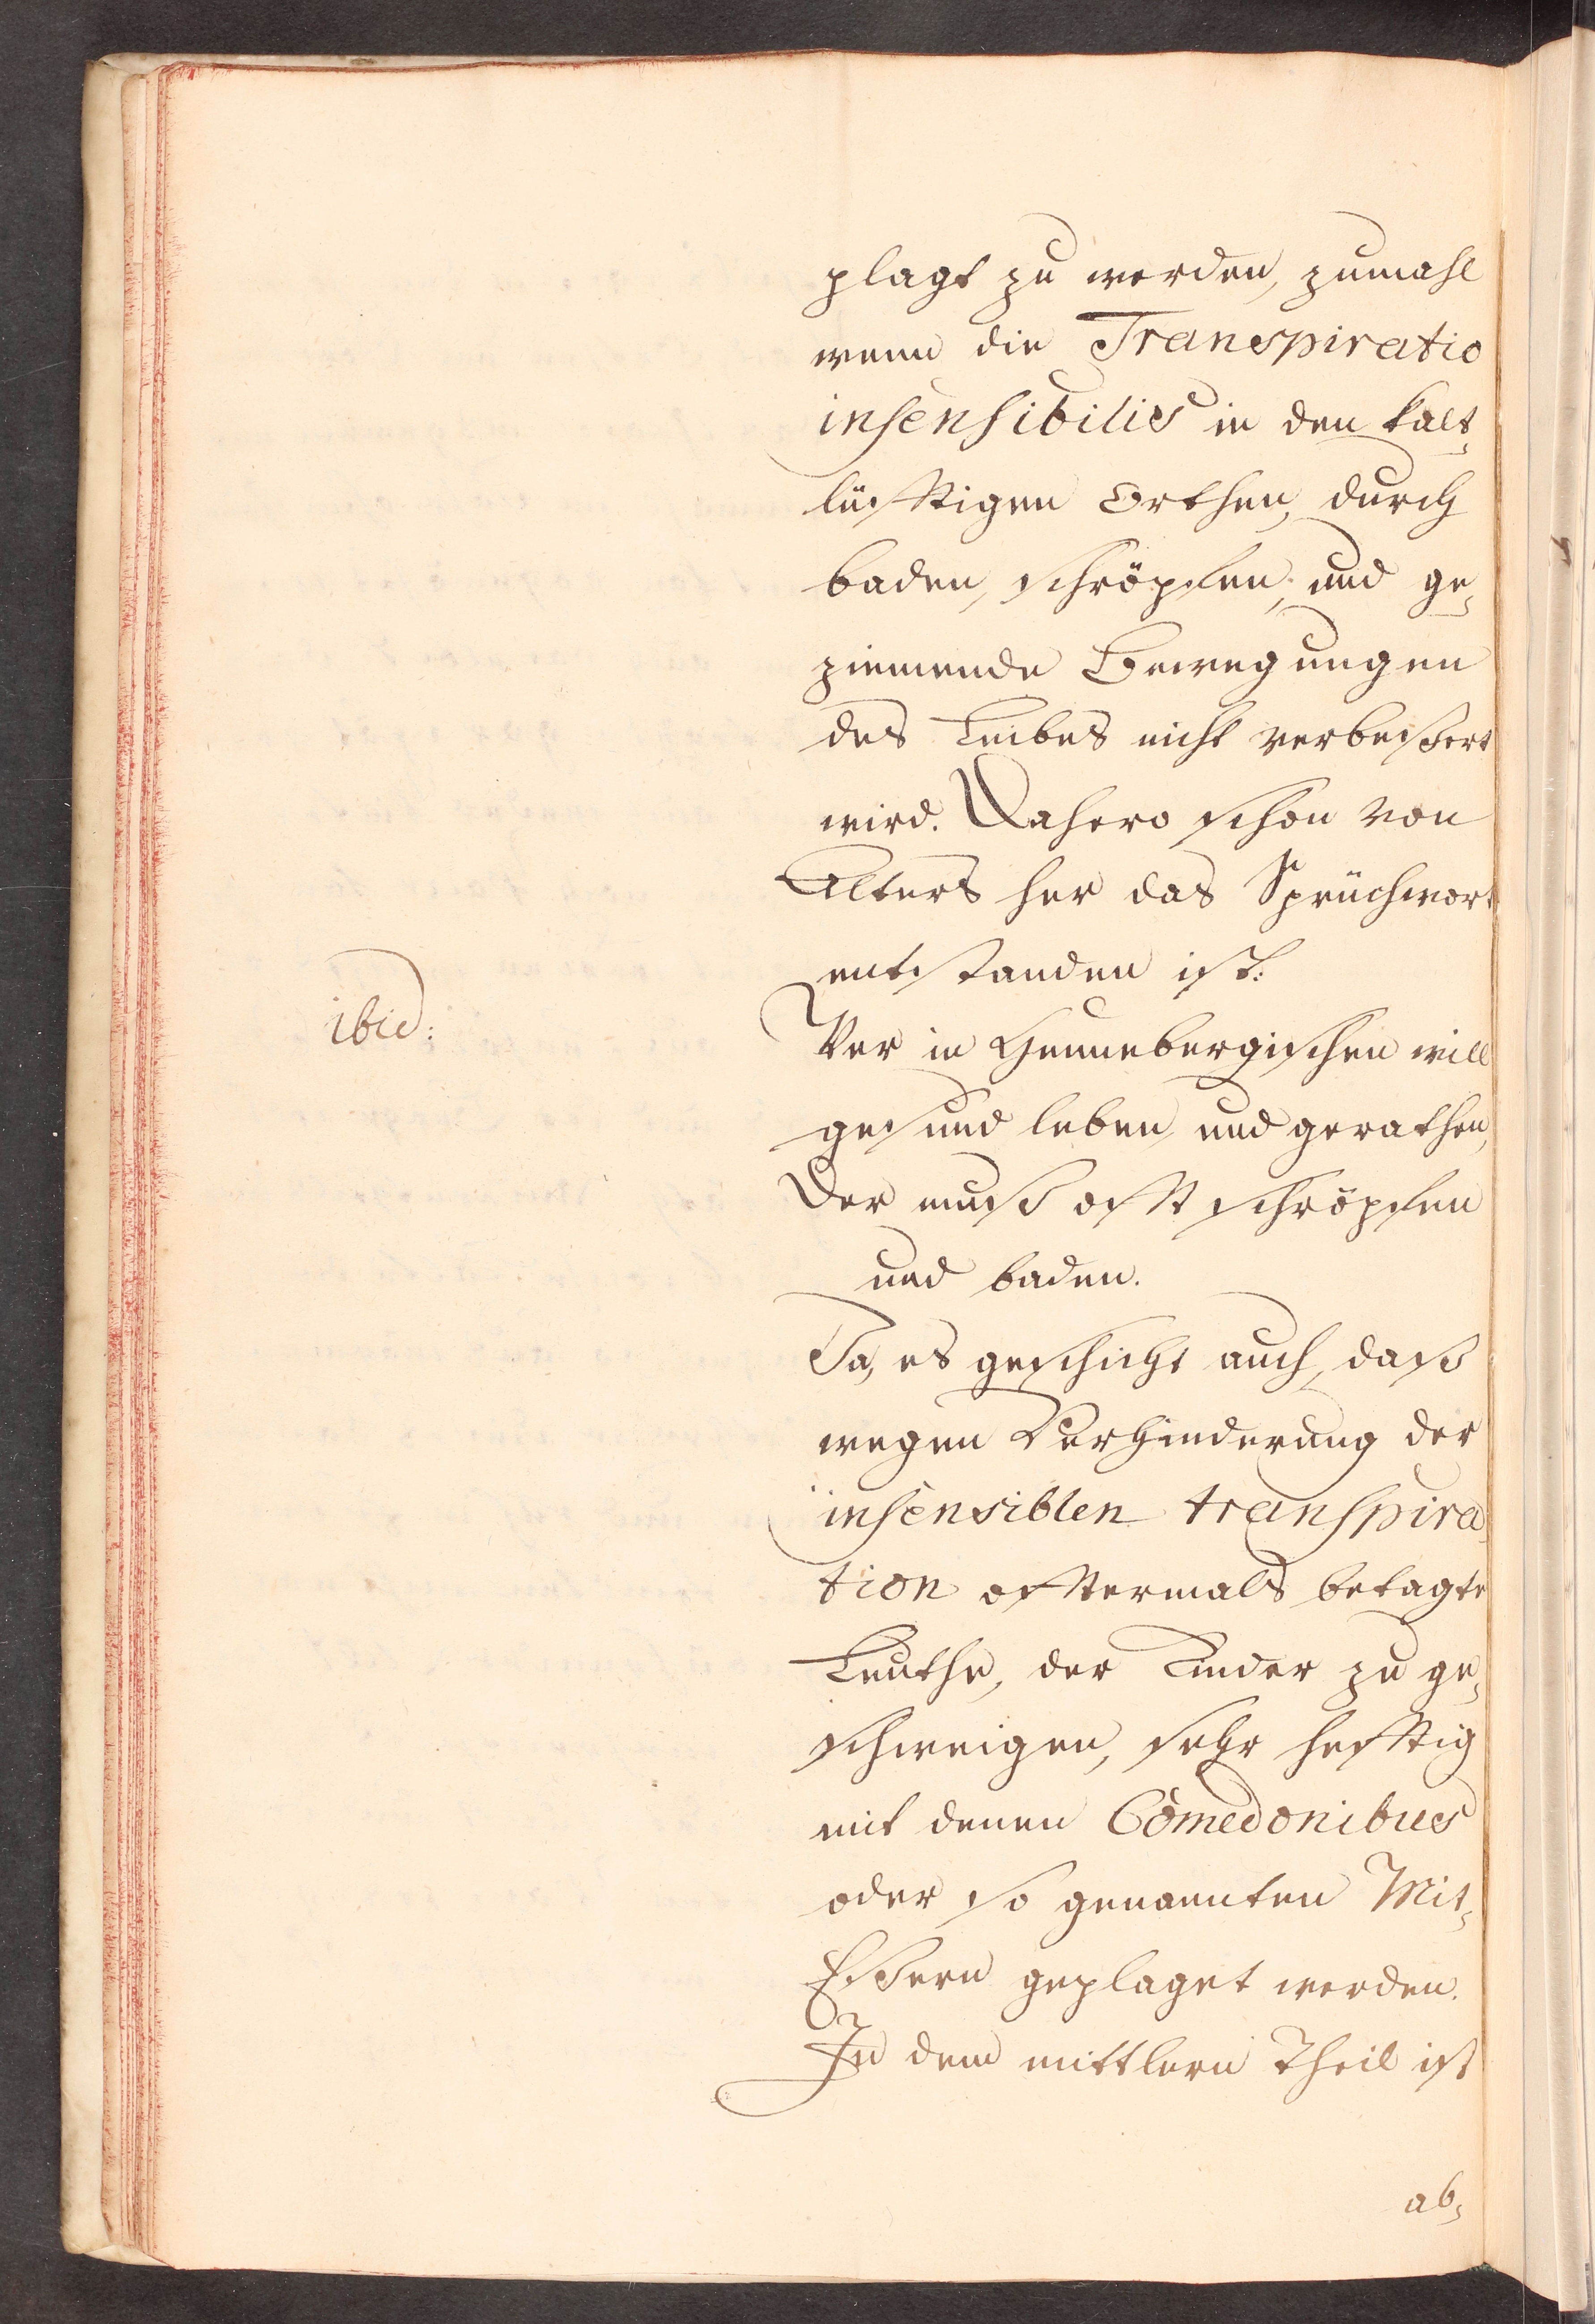 plagt zu werden, zumahl
wenn die Transpiratio
insensibilis in den kalt-
lüfftigen Orthen, durch
baden, schröpfen, und ge-
ziemende Bewegungen
des Leibes nicht verbeßert
wird. Dahero schon von
Alters her das Sprüchwort
entstanden ist:
ibid:
Wer in Hennebergischen will
gesund leben, und gerathen,
Der muß offt schröpfen
und baden.
Ja, es geschicht auch, daß
wegen Verhinderung der
insensiblen transpira-
tion offtermals betagte
Leuthe, der Kinder zu ge-
schweigen, sehr hefftig
mit denen Comedonibus
oder so genannten Mit-
Eßern geplaget werden.
In dem mittlern Theil ist
ab-